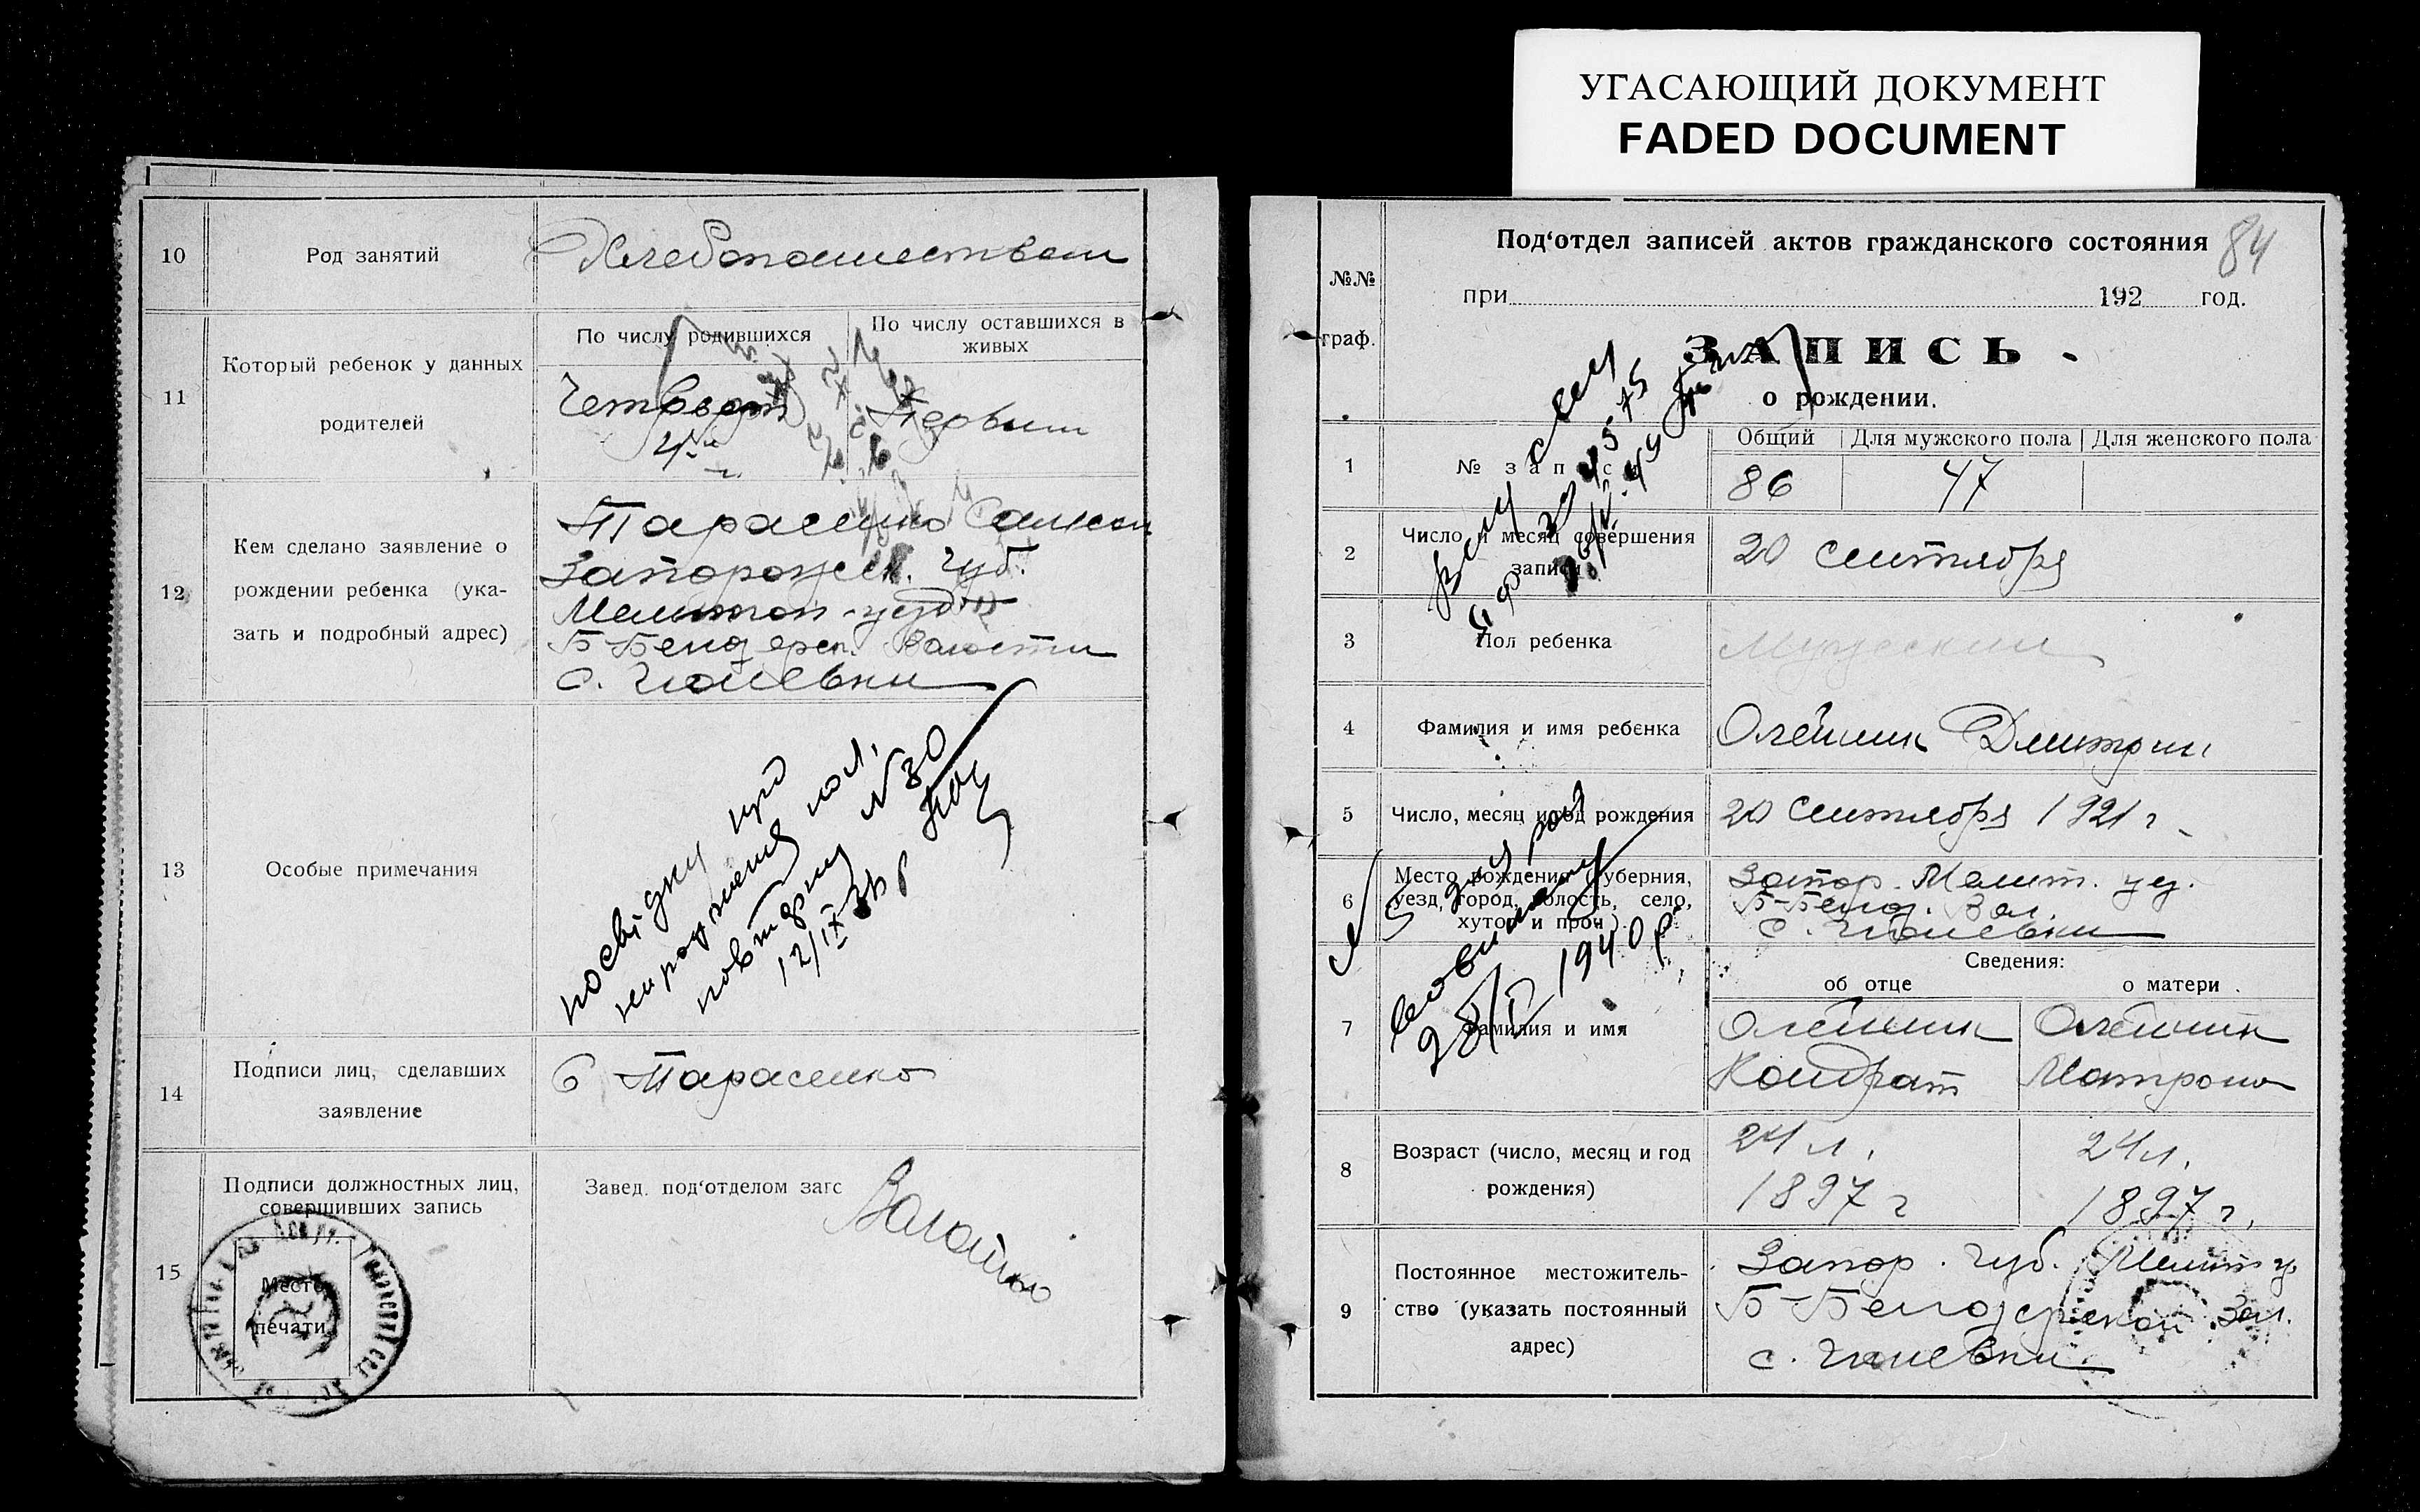 УГАСАЮЩИЙ ДОКУМЕНТ
FADED DOCUMENT
10
Род занятий
Хлебопашеством
11
Который ребенок у данных
родителей
По числу родившихся
По числу оставшихся в
живых
Четверт
4й
Первый
12
Кем сделано заявление о
рождении ребенка (ука-
зать и подробный адрес)
Тарасенко
Запорожск. Губ.
Мелитоп. уезда
Б-Белозерск. Волости
с. Гюневки
13
Особые примечания
посвідку про
народження
повторну № 30
12/IX
14
Подписи лиц, сделавших
заявление
С Тарасенко
15
Подписи должностных лиц,
совершивших запись
Место
печати
Завед. под'отделом загс
84
№№
граф.
Под'отдел записей актов гражданского состояния
при 192 год.
ЗАПИСЬ
о рождении.
1
№ записи
Общий
Для мужского пола
Для женского пола
86
47
2
Число и месяц совершения
записи
20 Сентября
3
Пол ребенка
Мужеский
4
Фамилия и имя ребенка
Олейник Дмитрий
5
Число, месяц и год рождения
20 Сентября 1921 г.
6
Место рождения (губерния,
уезд, город, волость, село,
хутор и проч.)
Запор. Мелит. уез.
Б-Белоз. Вол.
с. Гюневки
Сведения:
об отце
о матери
7
Фамилия и имя
Олейник
Кондрат
Олейник
Матрона
1940 р.
8
Возраст (число, месяц и год
рождения)
24 л.
1897 г
24 л.
1897 г.
9
Постоянное местожитель-
ство (указать постоянный
адрес)
Запор. Губ. Мелит у
Б-Белозерской Вол.
с. Гюневки